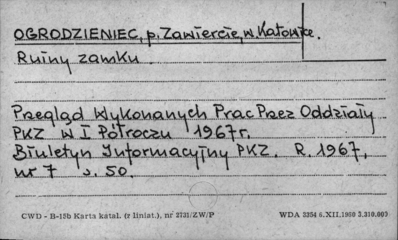 OGRODZIENIEC, p. Zawiercie, w. Katowice.
Ruiny zamku.
Przegląd Wykonanych Prac Przez Oddziały
PKZ w I Półroczu 1967r.
Biuletyn Informacyjny PKZ. R. 1967,
nr 7 s. 50.
CWD - B-15b Karta katal. (z liniat.), nr 2731/ZW/P WDA 3354 6.XII.1968 3.310.000